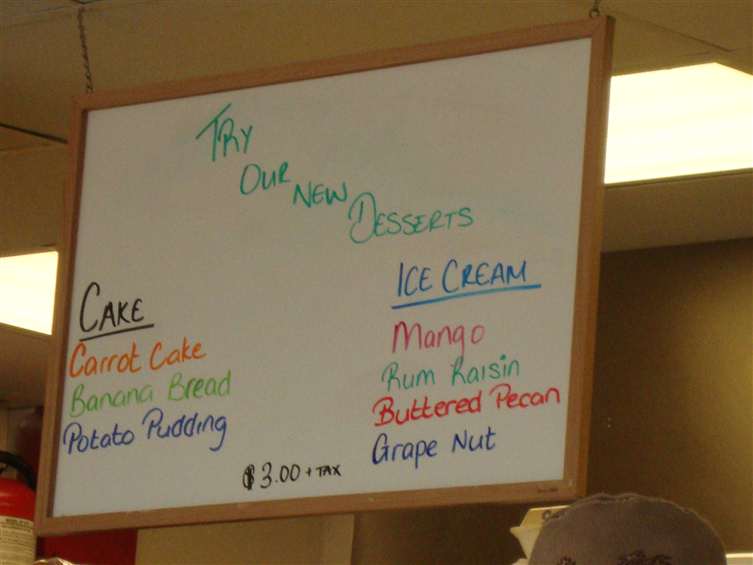 TRY
OUR
NEW
DESSERTS
CAKE
Carrot Cake
Banana Bread
Potato Pudding
ICE CREAM
Mango
Rum Raisin
Buttered Pecan
Grape Nut
$3.00 + TAX